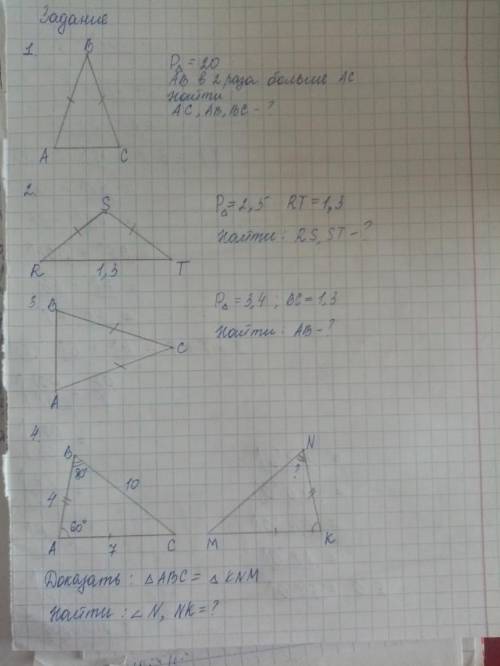 Задание
1.
B
A
C
P△ = 20
AB в 2 раза больше AC
Найти
AC, AB, BC - ?
2.
S
R
1,3
T
P△ = 2,5 RT = 1,3
Найти: RS, ST - ?
3.
B
C
A
P△ = 3,4; BC = 1,3
Найти: AB - ?
4.
B
80°
10
4
60°
A
7
C
N
?
M
K
Доказать: △ABC = △KNM
Найти: ∠N, NK = ?